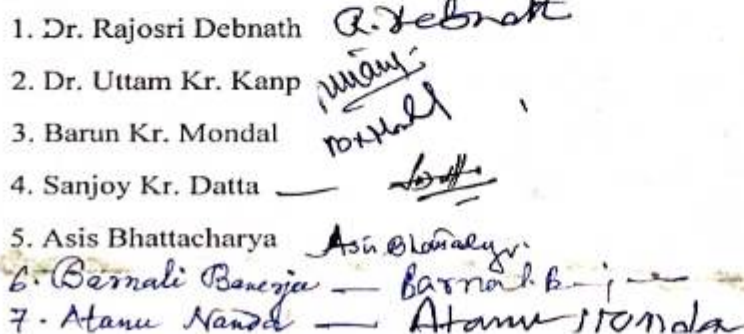 1. Dr. Rajosri Debnath R. Debnath
2. Dr. Uttam Kr. Kanp
3. Barun Kr. Mondal
4. Sanjoy Kr. Datta —
5. Asis Bhattacharya Asis Bhattacharya
6. Barnali Banerjee — Barnali B
7. Atanu Nanda — Atanu Nanda